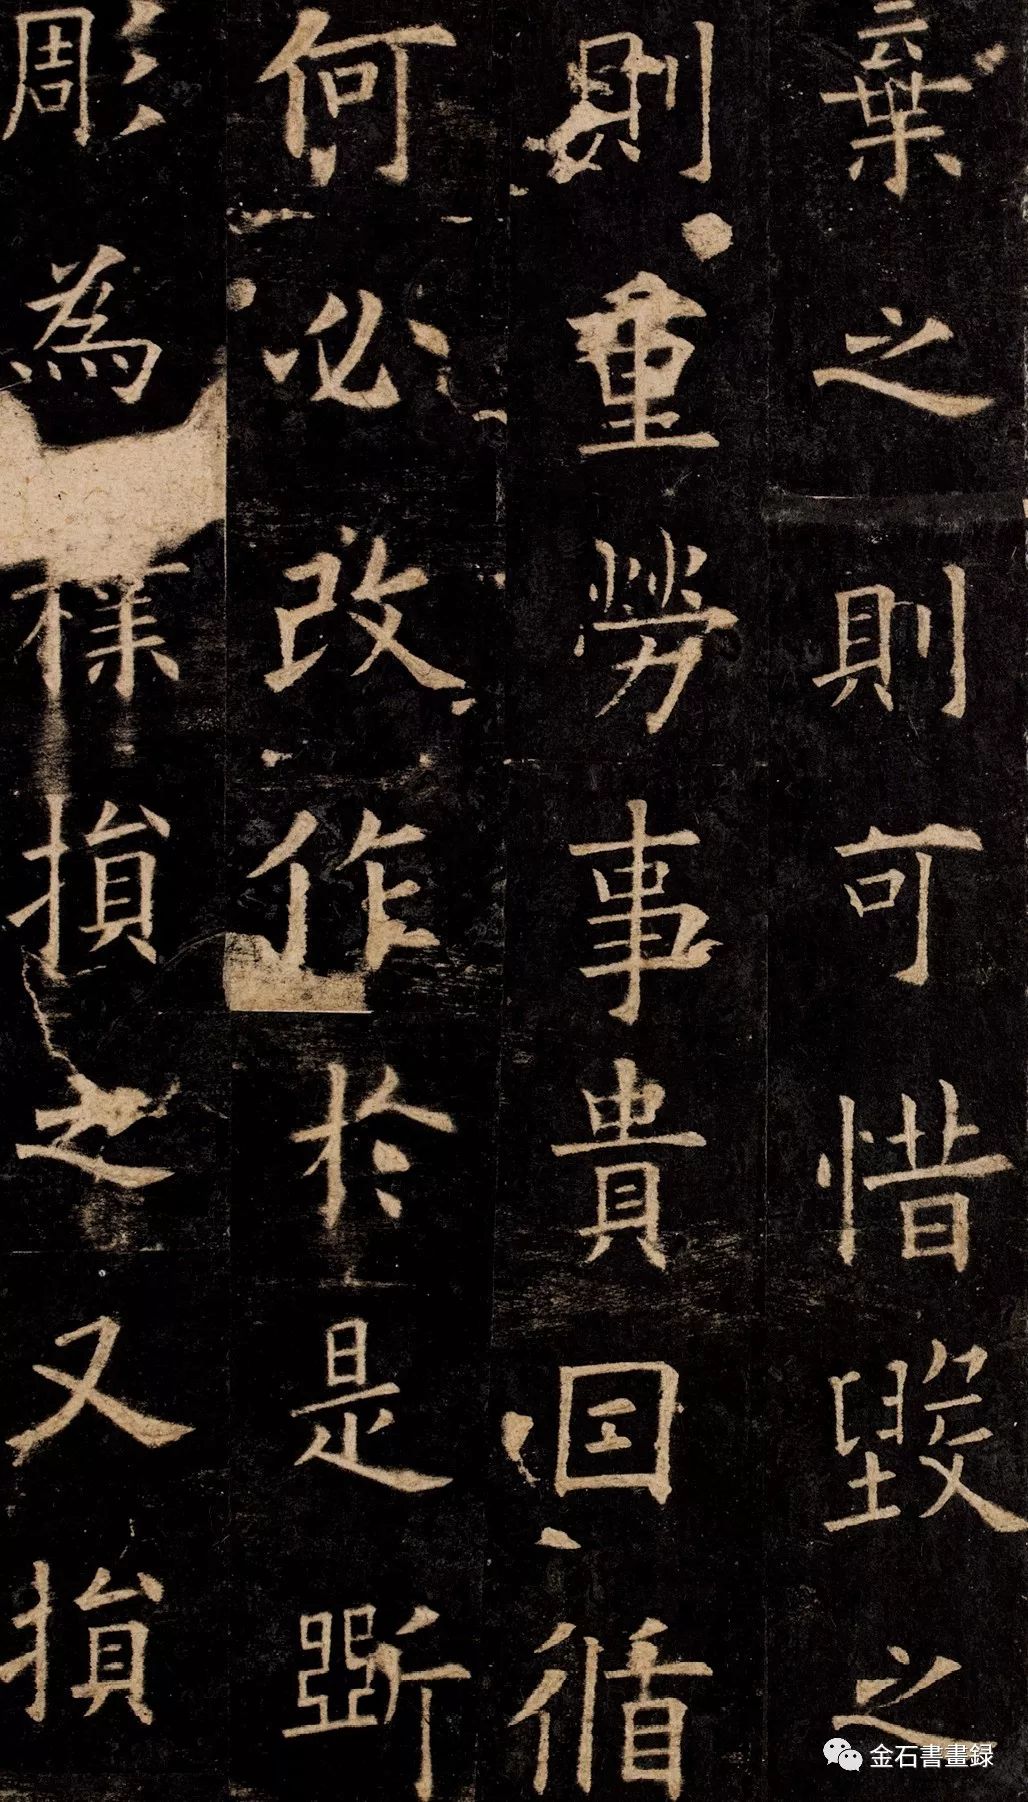 棄之則可惜毀之
則重勞事貴因循
何必改作於是斲
彫為樸損之又損
金石書畫録